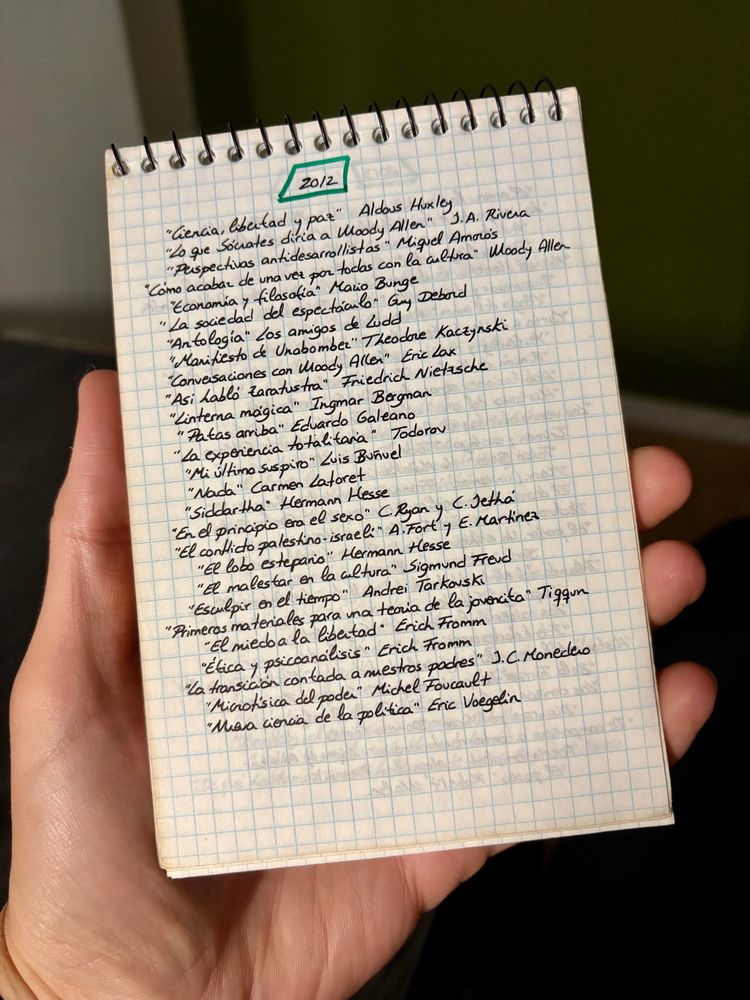 2012
"Ciencia, libertad y paz" Aldous Huxley
"Lo que Sócrates diría a Woody Allen" J.A. Rivera
"Perspectivas antidesarrollistas" Miguel Amorós
"Cómo acabar de una vez por todas con la cultura" Woody Allen
"Economía y filosofía" Mario Bunge
"La sociedad del espectáculo" Guy Debord
"Antología" Los amigos de Ludd
"Manifiesto de Unabomber" Theodore Kaczynski
"Conversaciones con Woody Allen" Eric Lax
"Así habló Zaratustra" Friedrich Nietzsche
"Linterna mágica" Ingmar Bergman
"Patas arriba" Eduardo Galeano
"La experiencia totalitaria" Todorov
"Mi último suspiro" Luis Buñuel
"Nada" Carmen Laforet
"Siddartha" Hermann Hesse
"En el principio era el sexo" C. Ryan y C. Jethá
"El conflicto palestino-israelí" A. Fort y E. Martínez
"El lobo estepario" Hermann Hesse
"El malestar en la cultura" Sigmund Freud
"Esculpir en el tiempo" Andrei Tarkovski
"Primeros materiales para una teoría de la jovencita" Tiqqun
"El miedo a la libertad" Erich Fromm
"Ética y psicoanálisis" Erich Fromm
"La transición contada a nuestros padres" J.C. Monedero
"Microfísica del poder" Michel Foucault
"Nueva ciencia de la política" Eric Voegelin